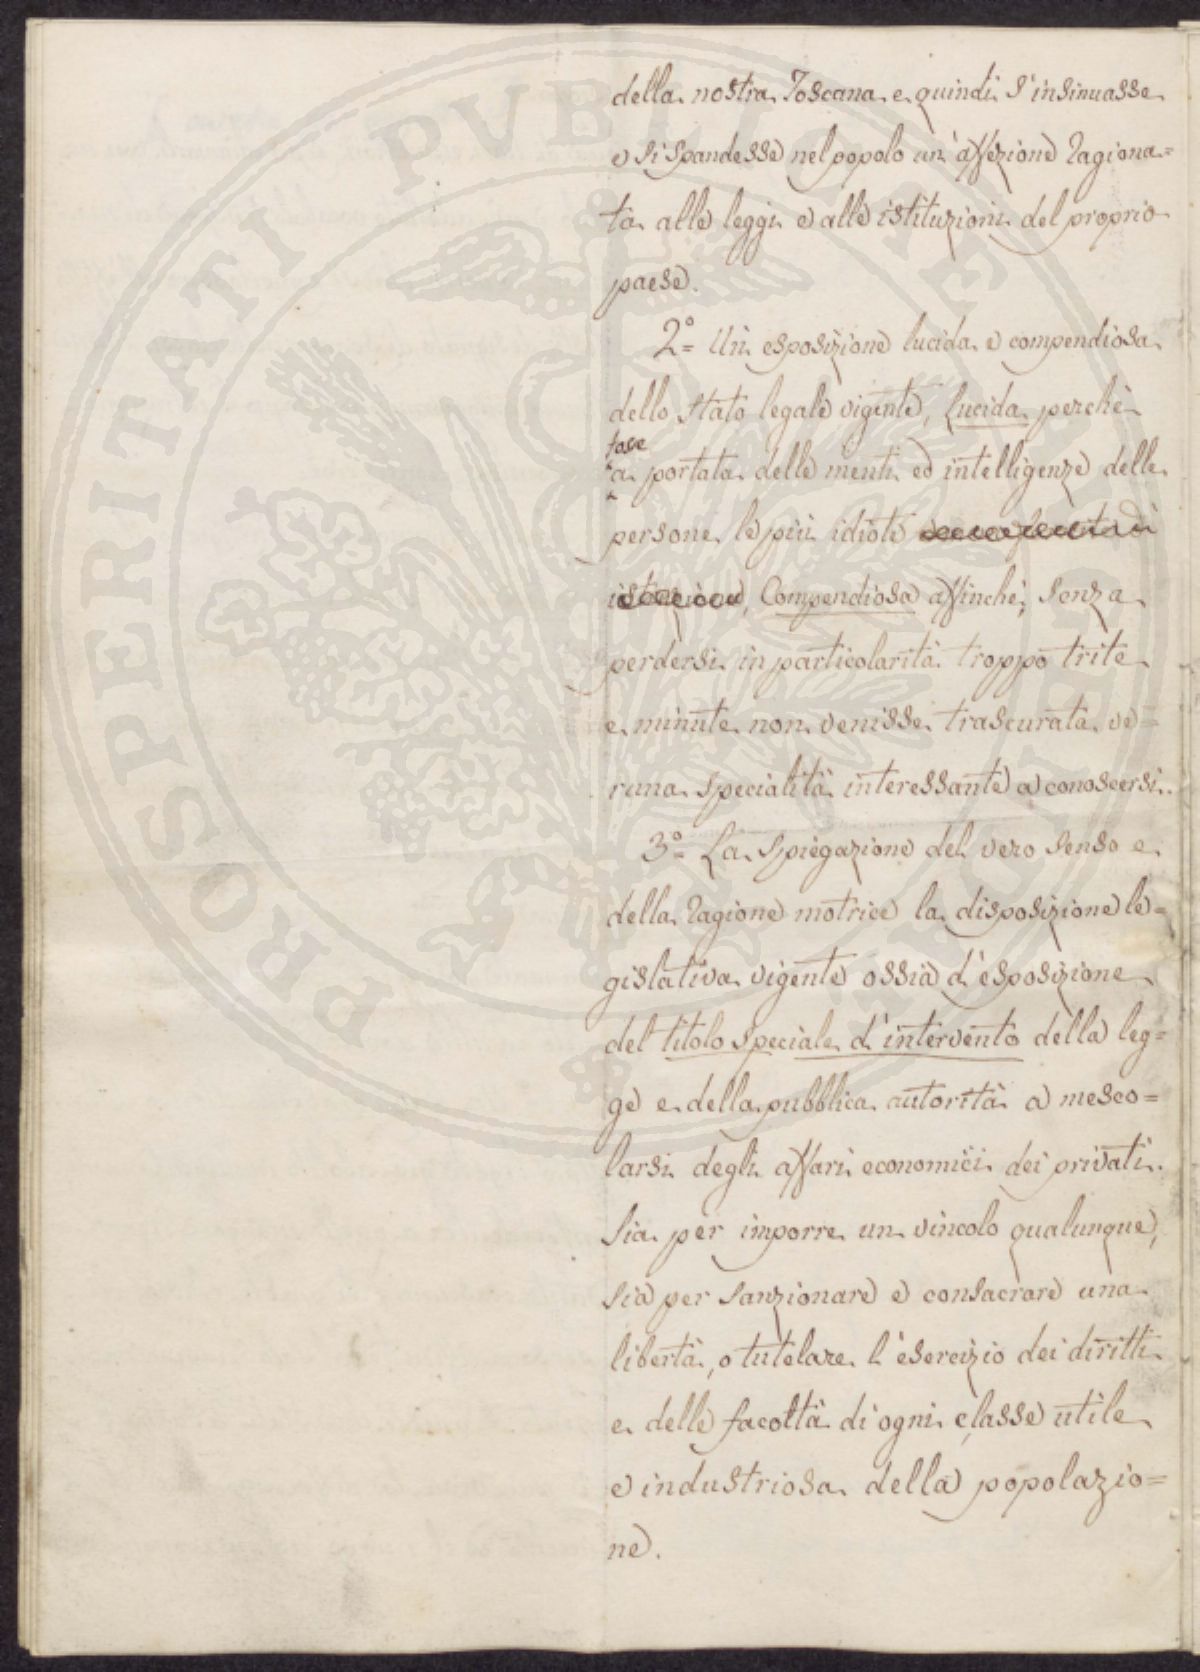 PROSPERITATI PVBLICAE AVGENDAE
della nostra Toscana e quindi s'insinuasse
e si spandesse nel popolo un'affezione ragiona=
ta alle leggi e alle istituzioni del proprio
paese.
2°= Un esposizione lucida e compendiosa
dello stato legale vigente, lucida perchè
a portata delle menti ed intelligenze delle
persone le più idiote
istruzione, Compendiosa affinchè, senza
perdersi in particolarità troppo trite
e minute non venisse trascurata ve=
runa specialità interessante a conoscersi.
3°= La spiegazione del vero senso e
della ragione motrice la disposizione le=
gislativa vigente ossia d'esposizione
del titolo speciale d'intervento della leg=
ge e della pubblica autorità a mesco=
larsi degli affari economici dei privati
sia per imporre un vincolo qualunque,
sia per sanzionare e consacrare una
libertà, o tutelare l'esercizio dei diritti
e delle facoltà di ogni classe utile
e industriosa della popolazio=
ne.